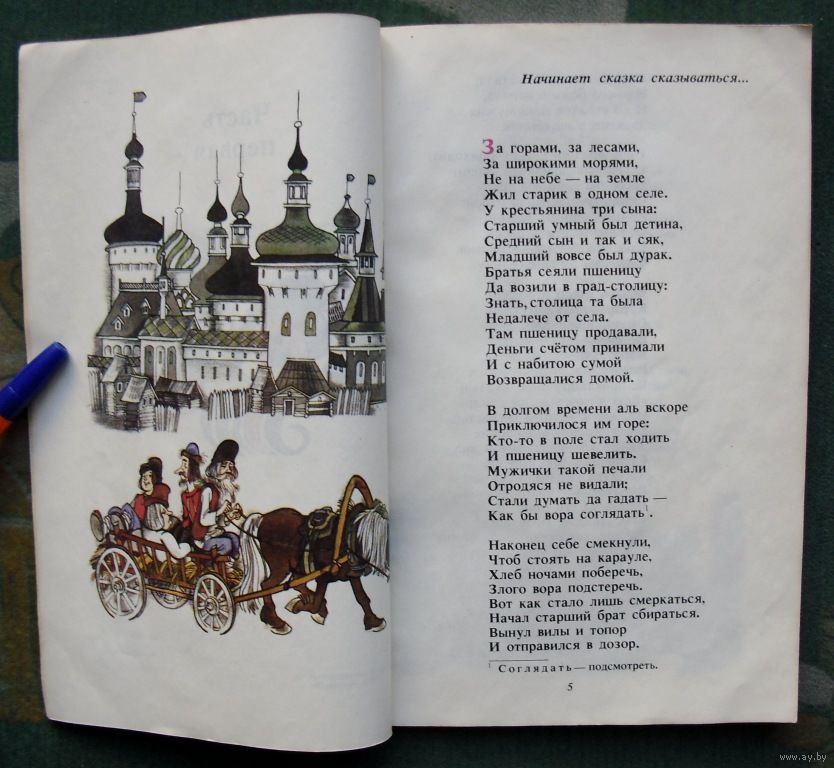 Часть
первая
Начинает сказка сказываться...
За горами, за лесами,
За широкими морями,
Не на небе — на земле
Жил старик в одном селе.
У крестьянина три сына:
Старший умный был детина,
Средний сын и так и сяк,
Младший вовсе был дурак.
Братья сеяли пшеницу
Да возили в град-столицу:
Знать, столица та была
Недалече от села.
Там пшеницу продавали,
Деньги счётом принимали
И с набитою сумой
Возвращалися домой.
В долгом времени аль вскоре
Приключилося им горе:
Кто-то в поле стал ходить
И пшеницу шевелить.
Мужички такой печали
Отродяся не видали;
Стали думать да гадать —
Как бы вора соглядать¹.
Наконец себе смекнули,
Чтоб стоять на карауле,
Хлеб ночами поберечь,
Злого вора подстеречь.
Вот как стало лишь смеркаться,
Начал старший брат сбираться.
Вынул вилы и топор
И отправился в дозор.
¹ Соглядать — подсмотреть.
5
© www.ay.by